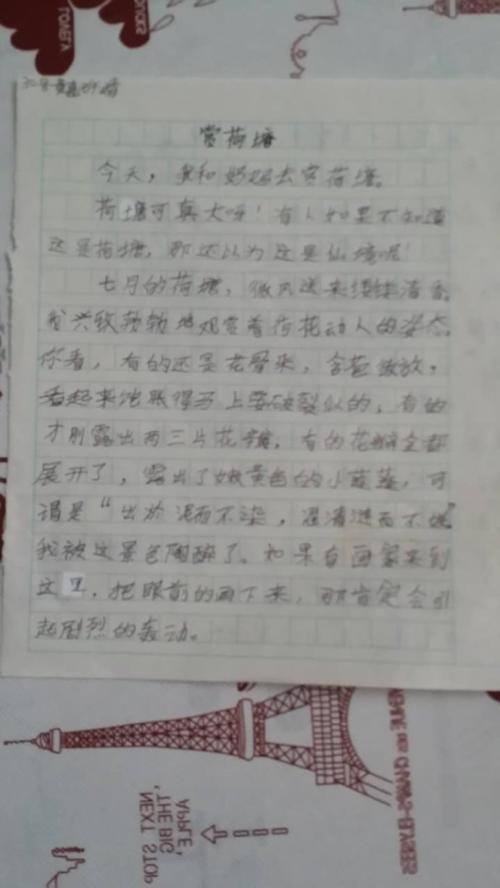 赏荷塘
今天，我和奶奶去赏荷塘。
荷塘可真大呀！有人如果不知道
这是荷塘，那还以为这是仙境呢！
七月的荷塘，微风送来缕缕清香。
我兴致勃勃地观赏着荷花动人的姿态。
你看，有的还是花骨朵，含苞欲放，
看起来饱胀得马上要破裂似的，有的
才刚露出两三片花瓣，有的花瓣全都
展开了，露出了嫩黄色的小莲蓬，可
谓是“出淤泥而不染，濯清涟而不妖”
我被这景色陶醉了。如果有画家来到
这里，把眼前的画下来，那肯定会引
起剧烈的轰动。
VIPPLE,
THE BIG
NEXT STOP